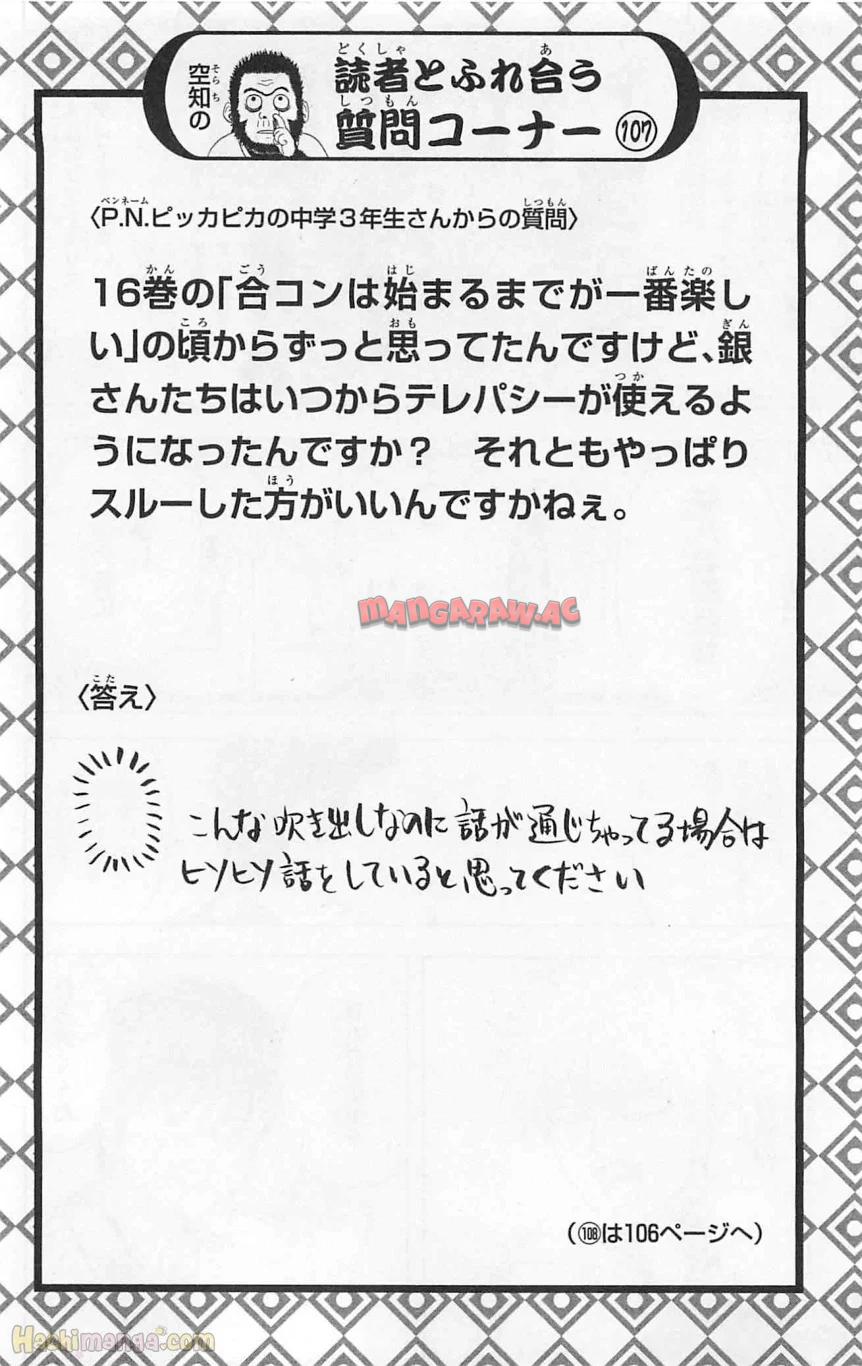 空知の
読者とふれ合う
質問コーナー107
〈P.N.ピッカピカの中学3年生さんからの質問〉
16巻の「合コンは始まるまでが一番楽し
い」の頃からずっと思ってたんですけど、銀
さんたちはいつからテレパシーが使えるよ
うになったんですか?　それともやっぱり
スルーした方がいいんですかねぇ。
MANGARAW.AC
〈答え〉
こんな吹き出しなのに話が通じちゃってる場合は
ヒソヒソ話をしていると思ってください
(108は106ページへ)
Hachimanga.com